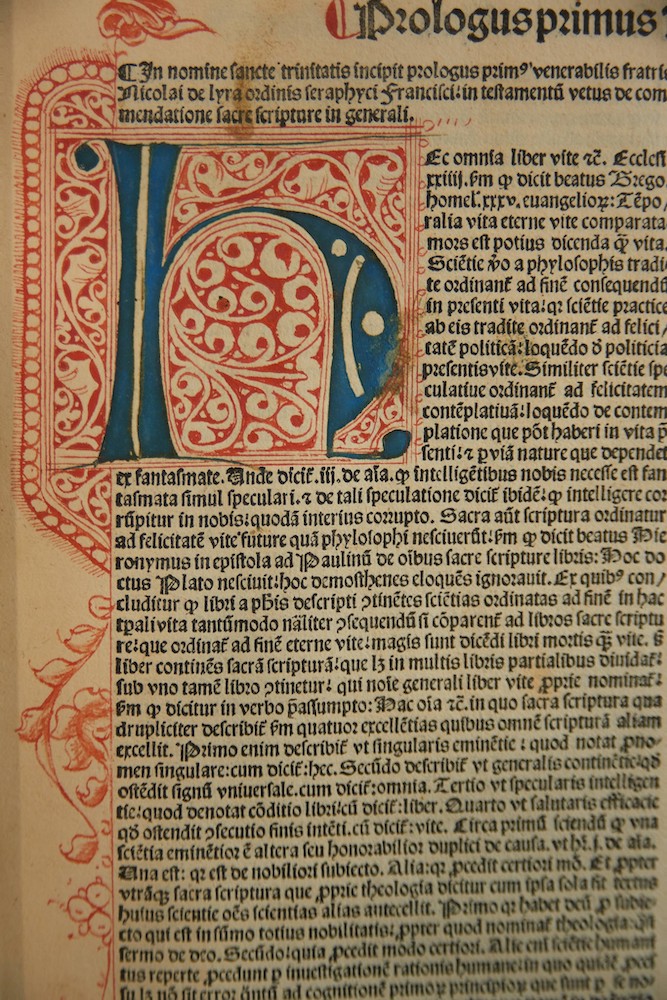 Prologus primus
¶In nomine sancte trinitatis incipit prologus primꝰ venerabilis fratri
Nicolai de lyra ordinis seraphyci Francisci: in testamentū vetus de com
mendatione sacre scripture in generali.
hEc omnia liber vite ⁊c̄. Ecclesi
xxiiij. s̄m ꝙ dicit beatus Grego
homel. xxxv. euangelioꝝ: Tēpo/
ralia vita eterne vite comparata
mors est potius dicenda q̄ꝫ vita.
Sciētie v̄o a phylosophis tradi
te ordinant᷑ ad finē consequendū
in presenti vita: qꝛ sciētie practice
ab eis tradite ordinant᷑ ad felici/
tatē politicā: loquēdo d̄ politicia
presentis vite. Similiter sciētie spe
culatiue ordinant᷑ ad felicitatem
contēplatiuā: loquēdo de contem
platione que pōt haberi in vita p̄
senti: ⁊ ꝑ viā nature que dependet
ex fantasmate. Unde dicit᷑. iij. de aīa. ꝙ intelligētibus nobis necesse est fan
tasmata simul speculari. ⁊ de tali speculatione dicit᷑ ibidē: ꝙ intelligere cor
rūpitur in nobis: quodā interius corrupto. Sacra aūt scriptura ordinatur
ad felicitatē vite future quā phylosophi nesciuerūt: s̄m ꝙ dicit beatus Hie
ronymus in epistola ad Paulinū de oībus sacre scripture libris: Hoc do
ctus Plato nesciuit: hoc demosthenes eloquēs ignorauit. Ex quibꝰ con/
cluditur ꝙ libri a ph̄is descripti ꝯtinētes sciētias ordinatas ad finē in hac
tp̄ali vita tantūmodo nāliter ꝯsequendū si cōparent᷑ ad libros sacre scriptu
re: que ordinat᷑ ad finē eterne vite: magis sunt dicēdi libri mortis q̄ꝫ vite. s̄
liber continēs sacrā scripturā: que lꝫ in multis libris partialibus diuidat᷑:
sub vno tamē libro ꝯtinetur: qui noīe generali liber vite ꝓprie nominat᷑:
s̄m ꝙ dicitur in verbo p̄assumpto: Hac oīa ⁊c̄. in quo sacra scriptura qua
drupliciter describit᷑ s̄m quatuor excellētias quibus omnē scripturā aliam
excellit. Primo enim describit᷑ vt singularis eminētie: quod notat ꝓno-
men singulare: cum dicit᷑: hec. Secūdo describit᷑ vt generalis continētie: qd̄
ostēdit signū vniuersale. cum dicit᷑: omnia. Tertio vt specularis intelligen
tie: quod denotat cōditio libri: cū dicit᷑: liber. Quarto vt salutaris efficacie
qd̄ ostendit ꝯsecutio finis intēti. cū dicit᷑: vite. Circa primū sciendū ꝙ vna
sciētia eminētior ē altera seu honorabilior duplici de causa. vt hr̄. j. de aīa.
Una est: qꝛ est de nobiliori subiecto. Alia: qꝛ ꝓcedit certiori mō. Et ꝓpter
vtrāqꝫ sacra scriptura que ꝓprie theologia dicitur cum ipsa sola sit textus
huius scientie oēs scientias alias antecellit. Primo qꝛ habet deū ꝓ subie-
cto qui est in sūmo totius nobilitatis: ꝓpter quod nominat᷑ theologia: q̄si
sermo de deo. Secūdo: quia ꝓcedit modo certiori. Alie eni sciētie humani
tus reperte, ꝓcedunt ꝑ inuestigationē rationis humane: in quo quidē ꝓce
su lꝫ nō sit error q̄ntū ad cognitionē primoꝝ principioꝝ que sunt ꝑ se no